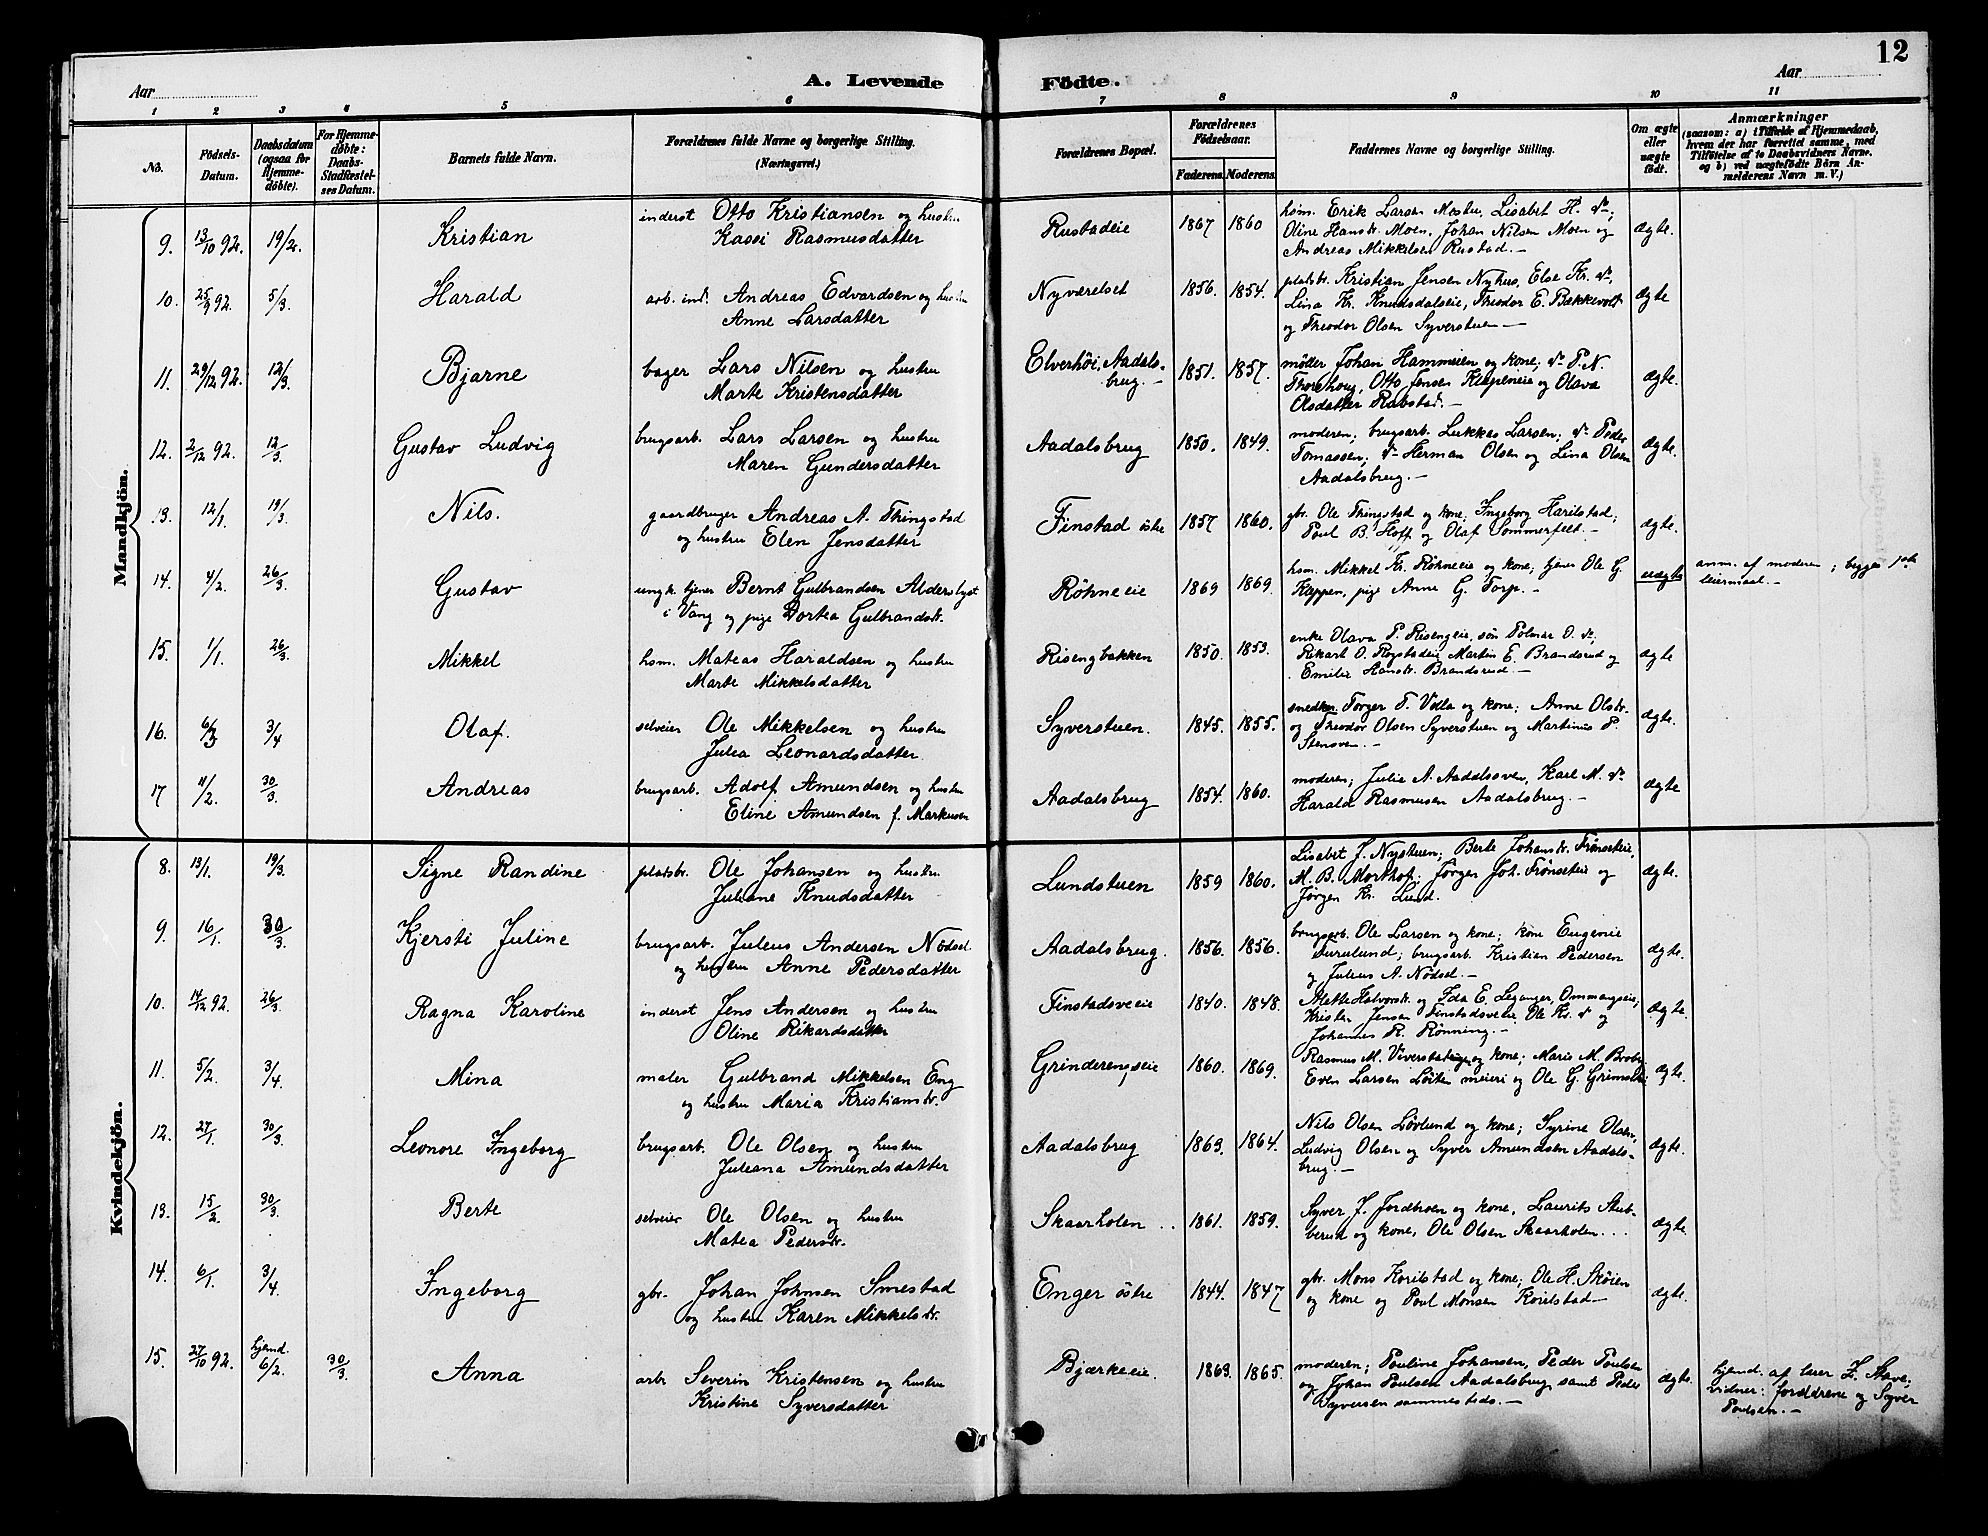 12
A. Levende Födte.
Aar
Aar
1 2 3 4 5 6 7 8 9 10 11
No.
Födsels-Datum.
Daabsdatum (ogsaa for Hjemme-döbte).
For Hjemme-döbte: Daabs-Stadfæstel-ses Datum.
Barnets fulde Navn.
Forældrenes fulde Navne og borgerlige Stilling. (Næringsvei.)
Forældrenes Bopæl.
Forældrenes Födselsaar.
Faderens. Moderens.
Faddernes Navne og borgerlige Stilling.
Om ægte eller uægte födt.
Anmærkninger
(saasom: a) i Tilfælde af Hjemmedaab, hvem der har forrettet samme, med Tilföielse af to Daabsvidners Navne, og b) ved uægtefödte Börn An-melderens Navn m. V.)
Mandkjön.
9. 13/10 92. 19/2. Kristian inderst Otto Kristiansen og hustru
Kassi Rasmusdatter
Rustadeie 1867 1860 hsm. Erik Larsen Mostue, Lisabet H. do;
Oline Hanstr. Moen, Johan Nilsen Moen og
Andreas Mikkelsen Rustad.— ægte.
10. 25/9 92. 5/3. Harald arb. ind. Andreas Edvardsen og hustru
Anne Larsdatter
Nyværelset 1856. 1854. pladsbr. Kristian Jensen Nyhus, Else Kr. do,
Lina Kr. Knudsdalseie, Theodor E. Bakkevolt
og Theodor Olsen Syverstuen— ægte
11. 29/12 92. 12/3. Bjarne bager Lars Nilsen og hustru
Marte Kristensdatter
Elverhöi, Aadals-
brug.— 1851. 1857. möller Johan Hammeren og kone; do P. N.
Thorshoug, Otto Jensen Kleppeneie og Olava
Olsdatter Rabstad.— ægte.
12. 2/12 92. 12/3. Gustav Ludvig brugsarb. Lars Larsen og hustru
Maren Gundersdatter
Aadalsbrug 1850. 1849. moderen; brugsarb. Lukkas Larsen; do Peder
Tomassen; do Herman Olsen og Lina Olsen
Aadalsbrug.— ægte.
13. 12/1. 19/3. Nils. gaardbruger Andreas A. Thingstad
og hustru Elen Jensdatter
Finstad östre 1857 1860. gbr. Ole Thingstad og kone; Ingeborg Harilstad;
Poul B. Hoff og Olaf Sommerfelt.— ægte.
14. 4/2. 26/3. Gustav ungk. tjener Bernt Gulbrandsen Alderslyst
i Vang og pige Dortea Gulbrandsdtr.
Röhneeie 1869 1869. hsm. Mikkel Kr. Röhneeie og kone; tjener Ole G.
Kappen, pige Anne G. Torp.— uægte anm. af moderen; begges 1ste
leiermaal.—
15. 1/1. 26/3. Mikkel hsm. Mateas Haraldsen og hustru
Marte Mikkelsdatter
Risengbakken 1850. 1853. enke Olava P. Risengeie, sön Polmar O. do,
Rikart O. Röystadeie, Martin E. Brandsrud og
Emilie Hanstr. Brandsrud.— ægte
16. 6/3 3/4 Olaf. selveier Ole Mikkelsen og hustru
Julea Leonardsdatter.
Syverstuen. 1845. 1855. snedker Torger T. Votla og kone; Anne Olstr.
og Theodor Olsen Syverstuen og Martinus P.
Stensven.— ægte.
17 4/2. 30/3. Andreas brugsarb. Adolf Amundsen og hustru
Eline Amundsen f. Markusen
Aadalsbrug 1854. 1860. moderen; Julie A. Aadalsoven, Karl M. do
Harald Rasmusen Aadalsbrug.— ægte
Kvindekjön.
8. 13/1. 19/3. Signe Randine pladsbr. Ole Johansen og hustru
Juliane Knudsdatter
Lundstuen 1859 1860. Lisabet J. Nystuen; Berte Johanstr. Frönseteie,
M. B. Morthof; Jörgen Joh. Frönseteie og
Jörgen Kr. Lund. ægte.
9. 16/1. 30/3. Kjersti Juline brugsarb. Juleus Andersen Nödsel
og hustru Anne Pedersdatter
Aadalsbrug. 1856. 1856. brugsarb. Ole Larsen og kone; kone Eugenie
Furulund; brugsarb. Kristian Pedersen
og Juleus A. Nödsel.— ægte.
10. 14/12 92. 26/3. Ragna Karoline inderst Jens Andersen og hustru
Oline Rikardsdatter
Finstadsveeie 1840. 1848. Mette Halvorstr. og Ida E. Leganger, Ommangseie;
Kristen Jensen Finstadsveeie, Ole Kr. do og
Johannes R. Rönning.— ægte.
11. 5/2. 3/4. Mina maler Gulbrand Mikkelsen Eng
og hustru Maria Kristianstr.
Grinderengseie 1860. 1869. Rasmus M. Viverstadeie og kone; Maris M. Broby
Even Larsen Löiten meieri og Ole G. Grimsbu ægte.
12. 27/1. 30/3. Leonore Ingeborg brugsarb. Ole Olsen og hustru
Juleana Amundsdatter
Aadalsbrug 1863. 1864. Nils Olsen Lövlund og kone; Syrine Olsen,
Ludvig Olsen og Syver Amundsen Aadals-
brug.— ægte.
13. 15/2. 30/3. Berte selveier Ole Olsen og hustru
Matea Pederstr.
Skaarholen 1861. 1859. Syver J. Jordbroen og kone, Laurits Stub-
berud og kone, Ole Olsen Skaarholen... ægte
14. 6/1. 3/4. Ingeborg gbr. Johan Johnsen Smestad
og hustru Karen Mikkelstr.
Enger östre 1844. 1847 gbr. Mons Korilstad og kone; Ole H. Sköien
og kone og Poul Monsen Korilstad— ægte.
15. 27/10 92. hjemd. 6/2. 30/3. Anna arbr Severin Kristensen og hustru
Kristine Syversdatter
Bjærkeeie. 1863. 1865. moderen; Pauline Johansen, Peder Poulsen
og Johan Poulsen Aadalsbrug samt Peder
Syversen sammesteds.— ægte. hjemd. af lærer Z. Stave,
vidner: forældrene og Syver
Poulsen.—